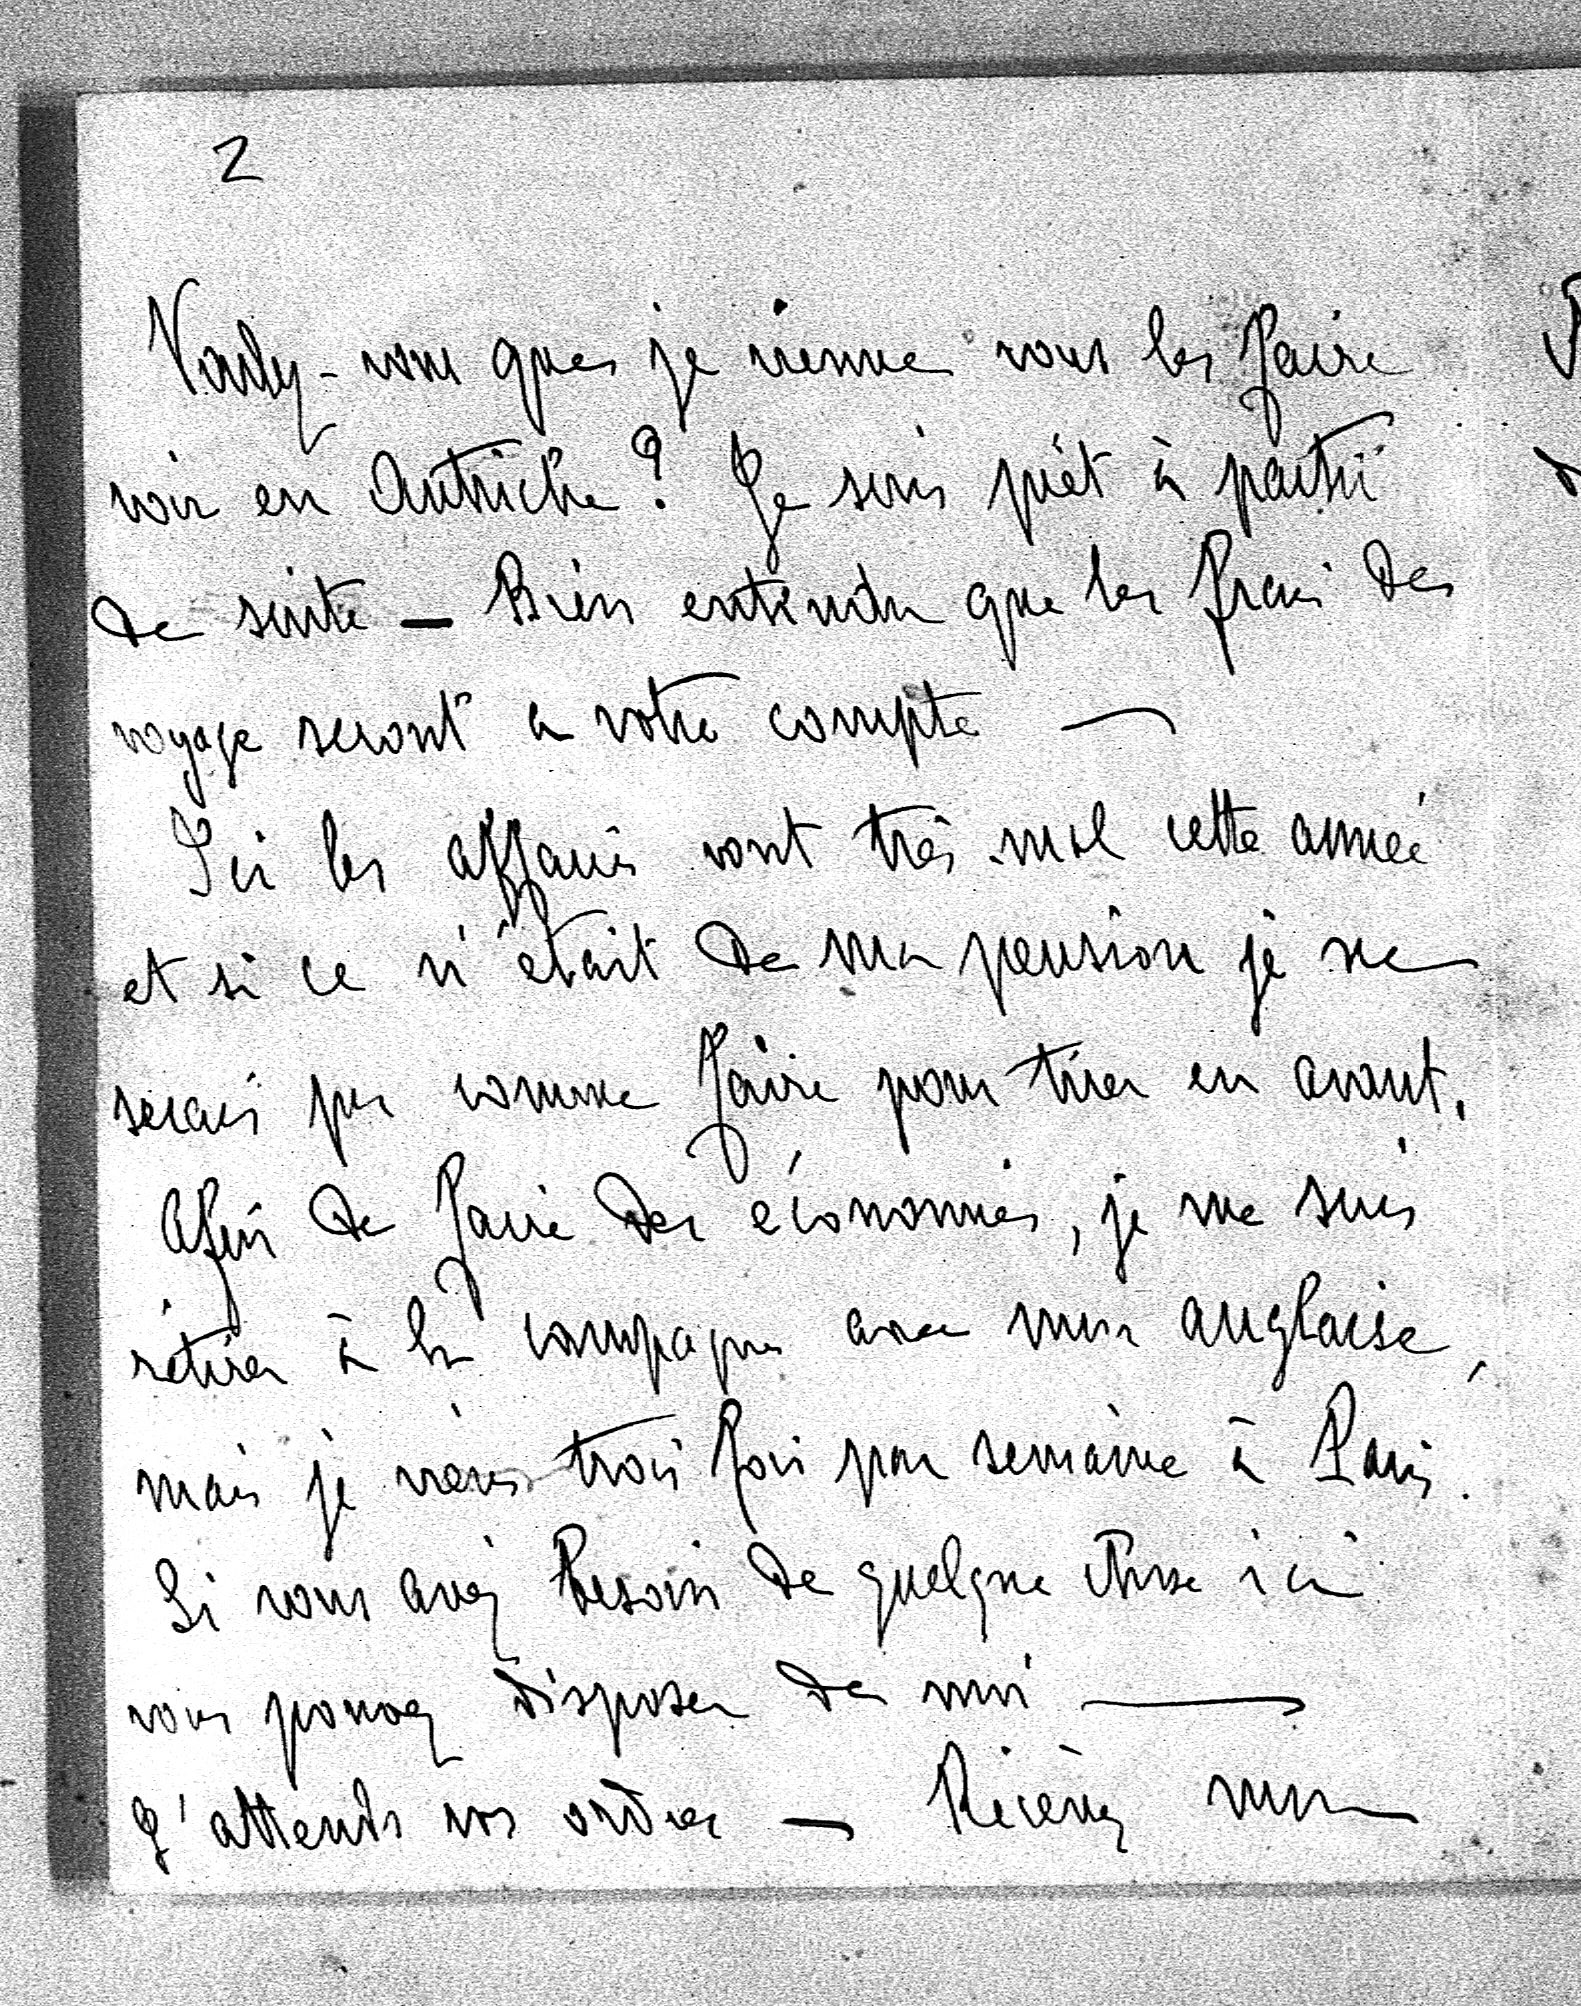 2
Voulez-vous que je vienne vous les faire
voir en Autriche ? Je suis prêt à partir
de suite — Bien entendu que les frais de
voyage seront a votre compte —
Ici les affaires vont très mal cette année
et si ce n'était de ma pension je ne
serais pas comme faire pour tirer en avant.
Afin de faire des économies, je me suis
rétirer à la campagne avec mon anglaise,
mais je viens trois fois par semaine à Paris.
Si vous avez besoin de quelque chose ici
vous pouvez disposer de moi —
J'attends vos ordres — Recevez mon